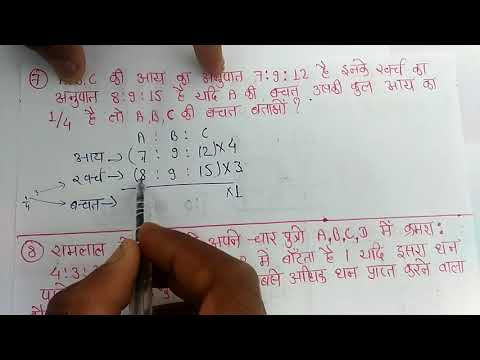 7 A,B,C की आय का अनुपात 7:9:12 है इनके खर्च का
अनुपात 8:9:15 है यदि A की बचत उसकी कुल आय का
1/4 है तो A,B,C की बचत बताओं ?
A : B : C
आय → (7 : 9 : 12)×4
खर्च → (8 : 9 : 15)×3
1/4 3
बचत → ×1
8 रामलाल अपने चार पुत्रो A,B,C,D में क्रमशः
4:3: में बाँटता है । यदि इसरा धन
अधिक धन प्राप्त करने वाला